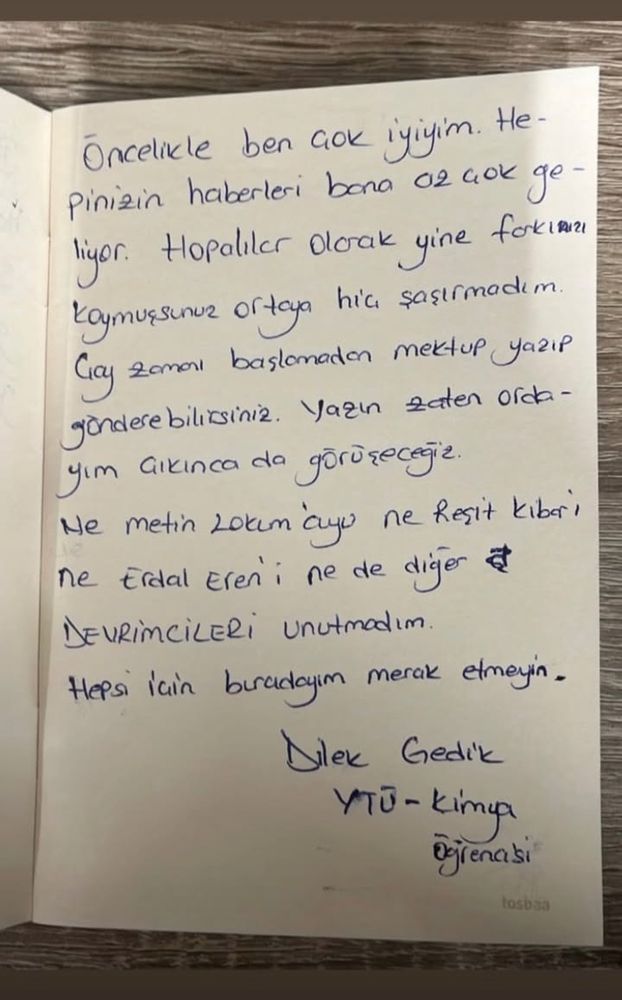 Öncelikle ben çok iyiyim. He-
pinizin haberleri bana az çok ge-
liyor. Hopalılar olarak yine farkınızı
koymuşsunuz ortaya hiç şaşırmadım.
Çay zamanı başlamadan mektup yazıp
gönderebilirsiniz. Yazın zaten orda-
yım çıkınca da görüşeceğiz.
Ne metin Lokum'cuyu ne Reşit kibar'i
ne Erdal Eren'i ne de diğer
DEVRİMCİLERİ unutmadım.
Hepsi için buradayım merak etmeyin.
Dilek Gedik
YTÜ - Kimya
Öğrencisi
tosbaa